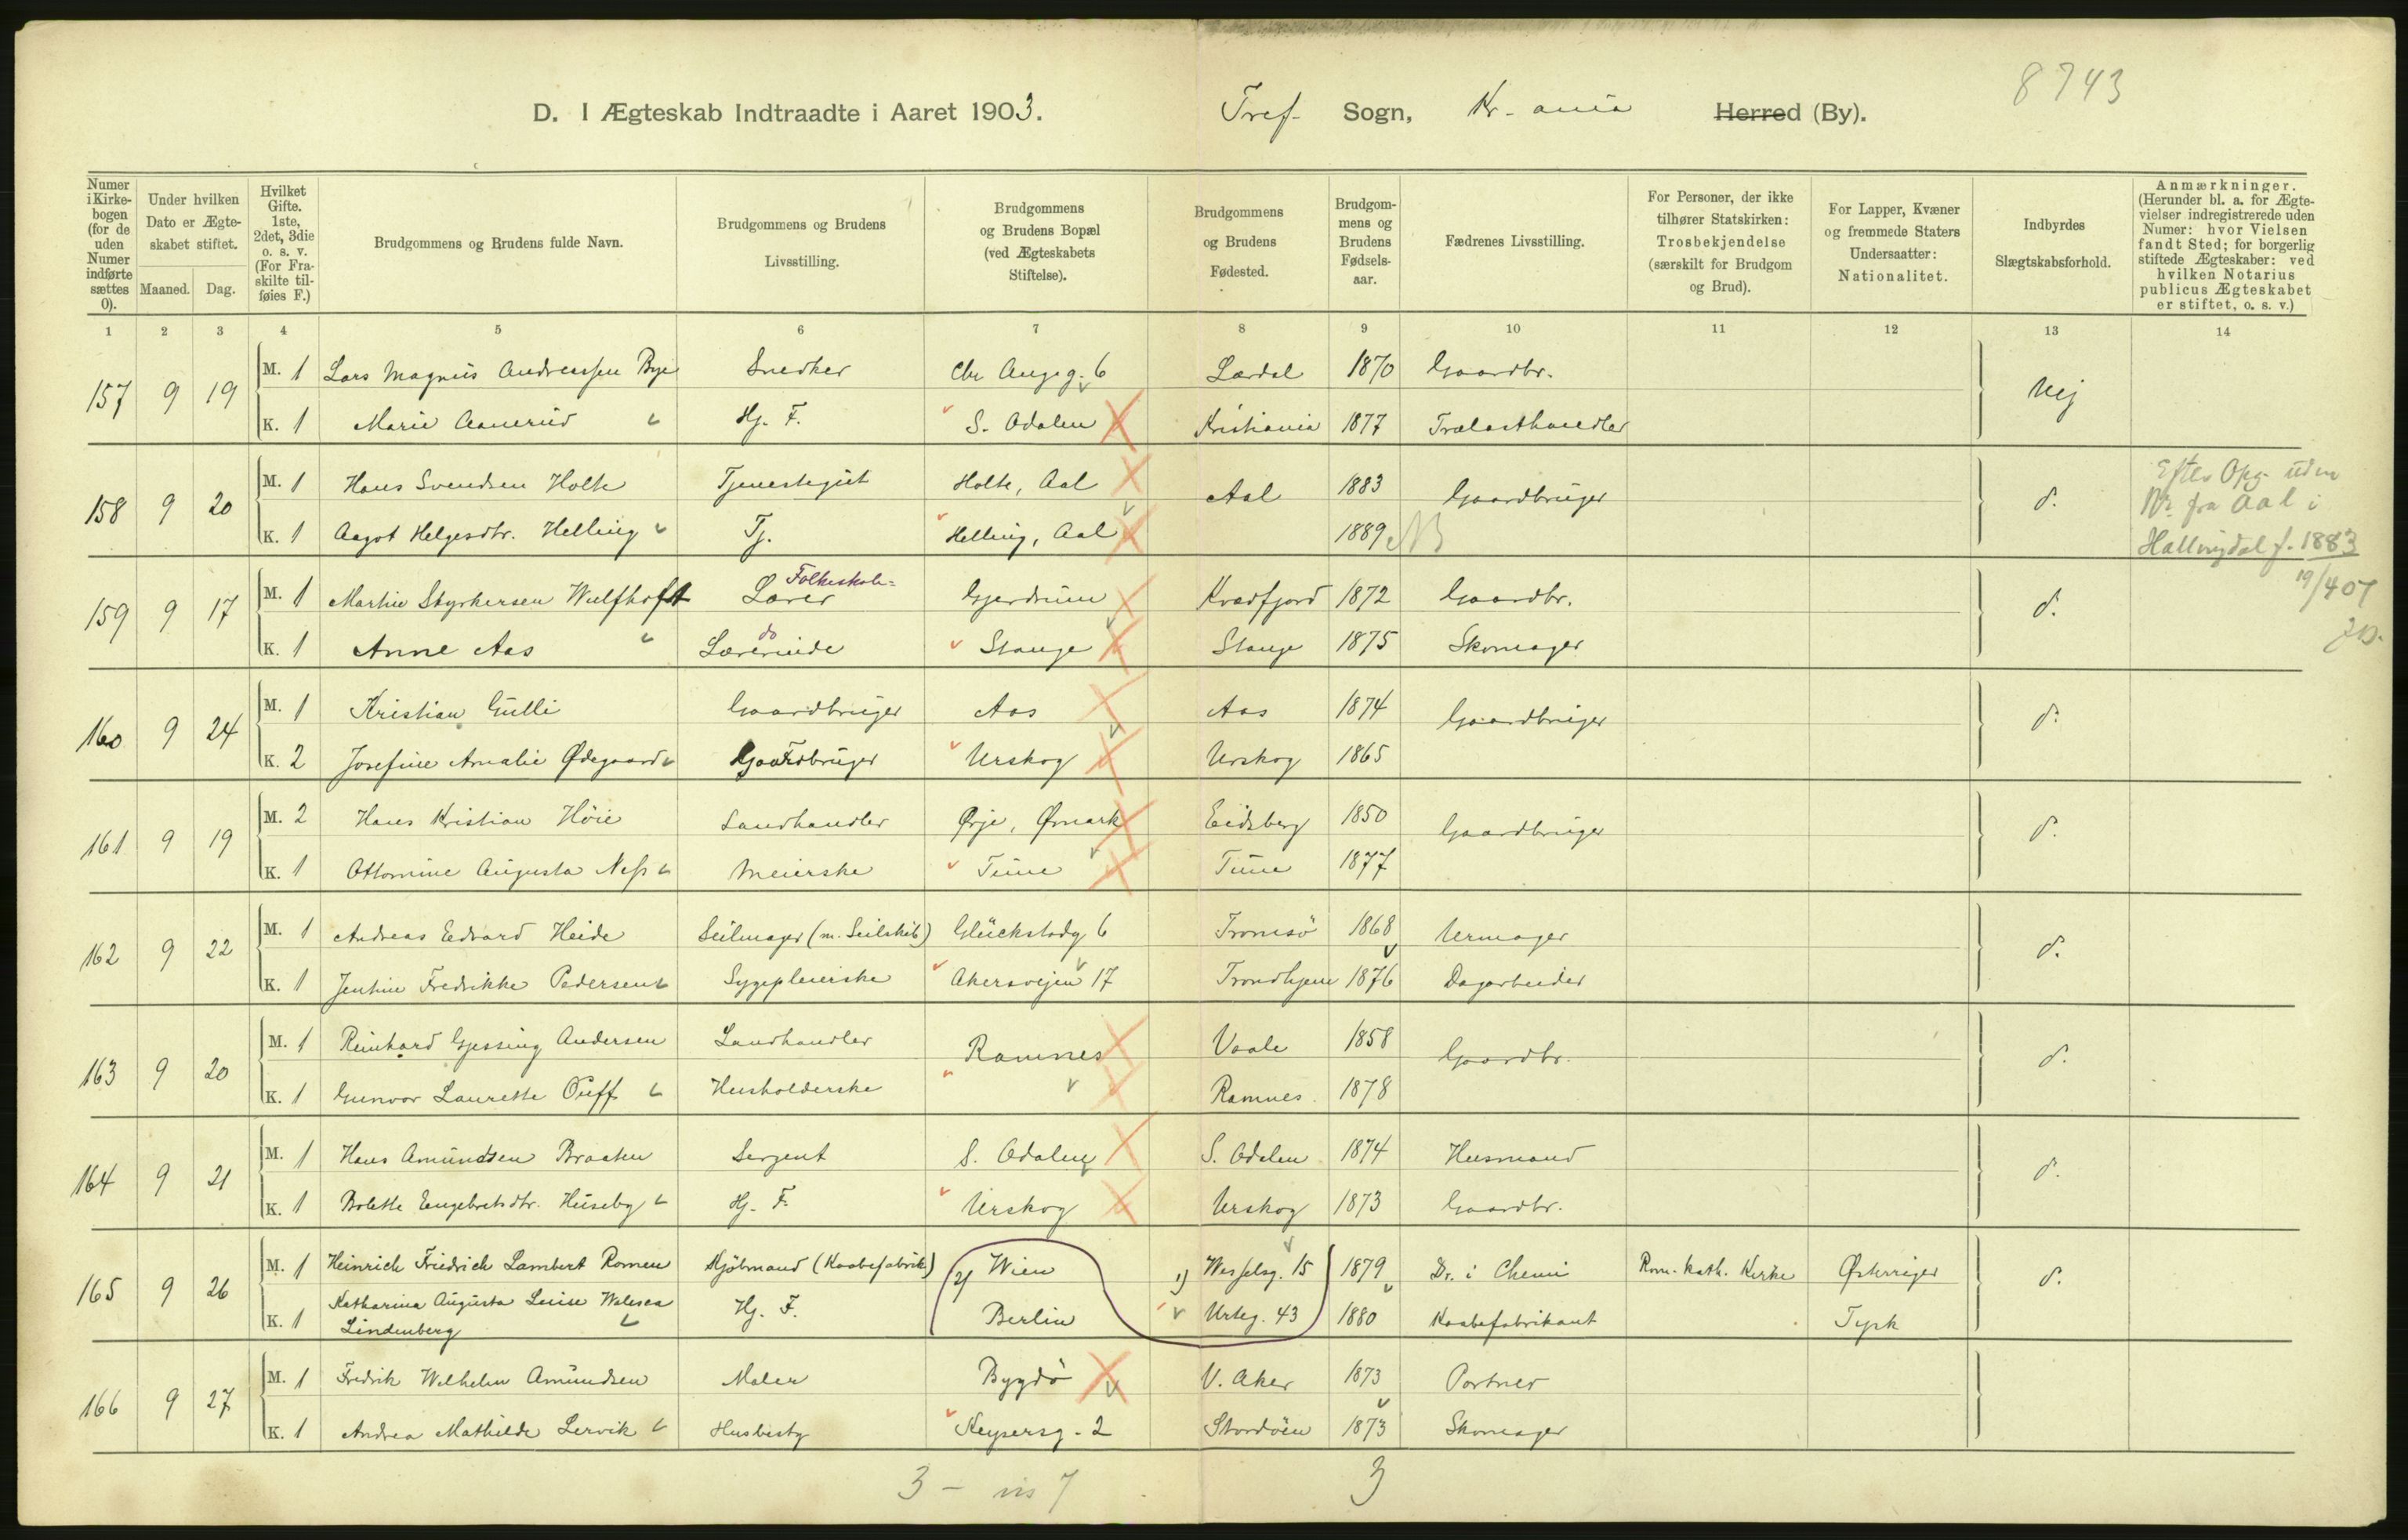 8743
D. I Ægteskab Indtraadte i Aaret 1903. Tref. Sogn, Kr.ania Herred (By).
Numer i Kirkebogen (for de uden Numer indførte sættes 0).
Under hvilken Dato er Ægteskabet stiftet.
Maaned. Dag.
Hvilket Gifte. 1ste, 2det, 3die o. s. v. (For Fraskilte tilføies F.)
Brudgommens og Brudens fulde Navn.
Brudgommens og Brudens Livsstilling.
Brudgommens og Brudens Bopæl (ved Ægteskabets Stiftelse).
Brudgommens og Brudens Fødested.
Brudgommens og Brudens Fødselsaar.
Fædrenes Livsstilling.
For Personer, der ikke tilhører Statskirken: Trosbekjendelse (særskilt for Brudgom og Brud).
For Lapper, Kvæner og fremmede Staters Undersaatter: Nationalitet.
Indbyrdes Slægtskabsforhold.
Anmærkninger. (Herunder bl. a. for Ægtevielser indregistrerede uden Numer: hvor Vielsen fandt Sted; for borgerlig stiftede Ægteskaber: ved hvilken Notarius publicus Ægteskabet er stiftet, o. s. v.)
1 2 3 4 5 6 7 8 9 10 11 12 13 14
157 9 19 M. 1 Lars Magnus Andreassen Bye Snedker Chr Augsg. 6 Lærdal 1870 Gaardbr. Nej
K. 1 Marie Aanerud Hj. F. S. Odalen Kristiania 1877 Trælasthandler
158 9 20 M. 1 Hans Svendsen Holte Tjenestegut Holte, Aal Aal 1883 Gaardbruger d. Efter Opg. uden
Nr. fra Aal i
K. 1 Aagot Helgesdtr. Helling Tj. Helling, Aal 1889 NB Hallingdal f. 1883
19/4 07
159 9 17 M. 1 Martin Styrkersen Wulfhoft Folkeskole= Lærer Gjerdrum Kvædfjord 1872 Gaardbr. d.
K. 1 Anne Aas do Lærerinde Stange Stange 1875 Skomager
160 9 24 M. 1 Kristian Gulli Gaardbruger Aas Aas 1874 Gaardbruger d.
K. 2 Josefine Amalie Ødegaard Gaardbruger Urskog Urskog 1865
161 9 19 M. 2 Hans Kristian Höie Landhandler Ørje, Ømark Eidsberg 1850 Gaardbruger d.
K. 1 Ottomine Augusta Ness Meierske Tune Tune 1877
162 9 22 M. 1 Andreas Edvard Heide Seilmager (m. Seilskib) Glückstadg 6 Tromsö 1868 Urmager d.
K. 1 Jentine Fredrikke Pedersen Sygepleierske Akersvejen 17 Trondhjem 1876 Dagarbeider
163 9 20 M. 1 Reinhard Gjessing Andersen Landhandler Ramnes Vaale 1858 Gaardbr. d.
K. 1 Gunvor Laurette Puff Husholderske Ramnes 1878
164 9 21 M. 1 Hans Amundsen Braaten Sergent S. Odalen S. Odalen 1874 Husmand d.
K. 1 Bolette Engebretsdtr. Huseby Hj. F. Urskog Urskog 1873 Gaardbr.
165 9 26 M. 1 Heinrich Friedrich Lambert Romen Kjöbmand (Kaabefabrik) 2) Wien 1) Wesselsg. 15 1879 Dr. i Chemi Rom. kath. Kirke Østerriger d.
K. 1 Katharina Augusta Luise Walesca
Lindenberg Hj. F. Berlin Urteg. 43 1880 Kaabefabrikant Tysk
166 9 27 M. 1 Fredrik Wilhelm Amundsen Maler Bygdö V. Aker 1873 Portner
K. 1 Andrea Mathilde Lervik Husbesty Keysersg. 2 Stordöen 1873 Skomager
3 - vis 7 3